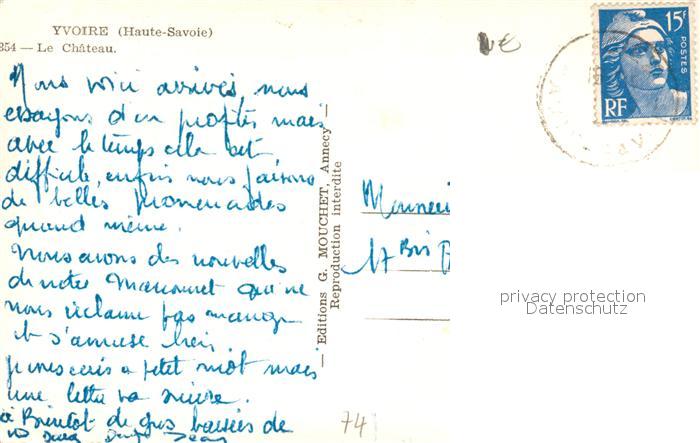 YVOIRE (Haute-Savoie)
354 — Le Château.
Nous voici arrivés, nous
essayons d'en profiter mais
avec le temps cela est
difficile, enfin nous faisons
de belles promenades
quand même.
Nous avons des nouvelles
de notre Mamounet qui ne
nous réclame pas mange
et s'amuse bien.
Je vous écris ce petit mot mais
une lettre va suivre.
à Bientôt de gros baisers de
— Editions G. MOUCHET, Annecy —
Reproduction interdite
15F
POSTES
RF
17 Bis
privacy protection
Datenschutz
74